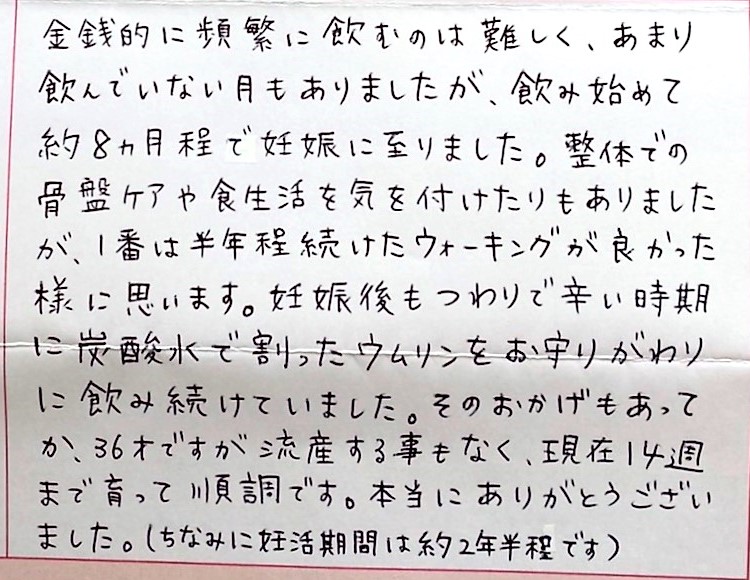 金銭的に頻繁に飲むのは難しく、あまり
飲んでいない月もありましたが、飲み始めて
約8ヵ月程で妊娠に至りました。整体での
骨盤ケアや食生活を気を付けたりもありました
が、1番は半年程続けたウォーキングが良かった
様に思います。妊娠後もつわりで辛い時期
に炭酸水で割ったウムリンをお守りがわり
に飲み続けていました。そのおかげもあって
か、36才ですが流産する事もなく、現在14週
まで育って順調です。本当にありがとうござい
ました。(ちなみに妊活期間は約2年半程です)